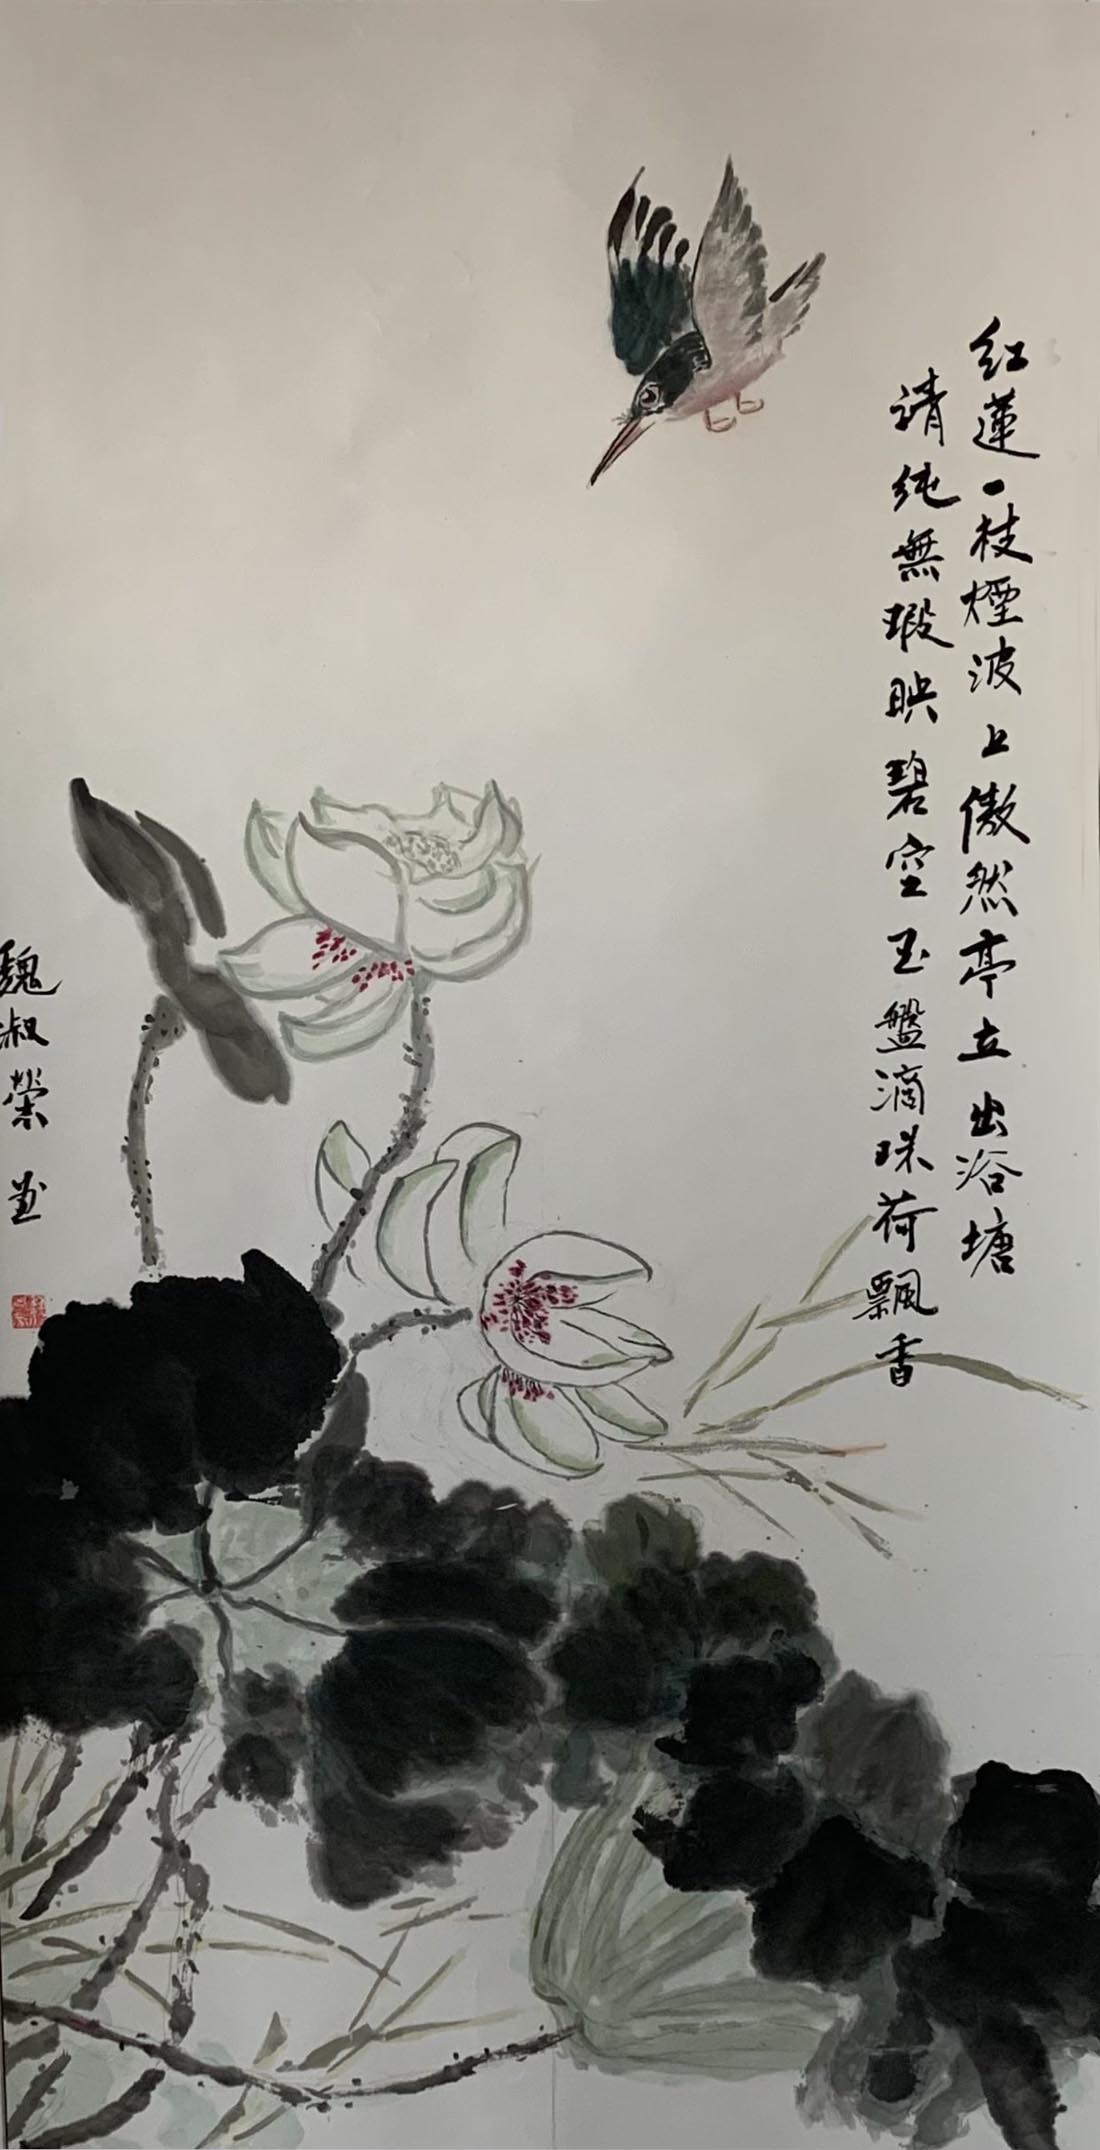 红蓮一枝煙波上傲然亭立出浴塘
清纯無瑕映碧空玉盤滴珠荷飄香
魏淑榮画